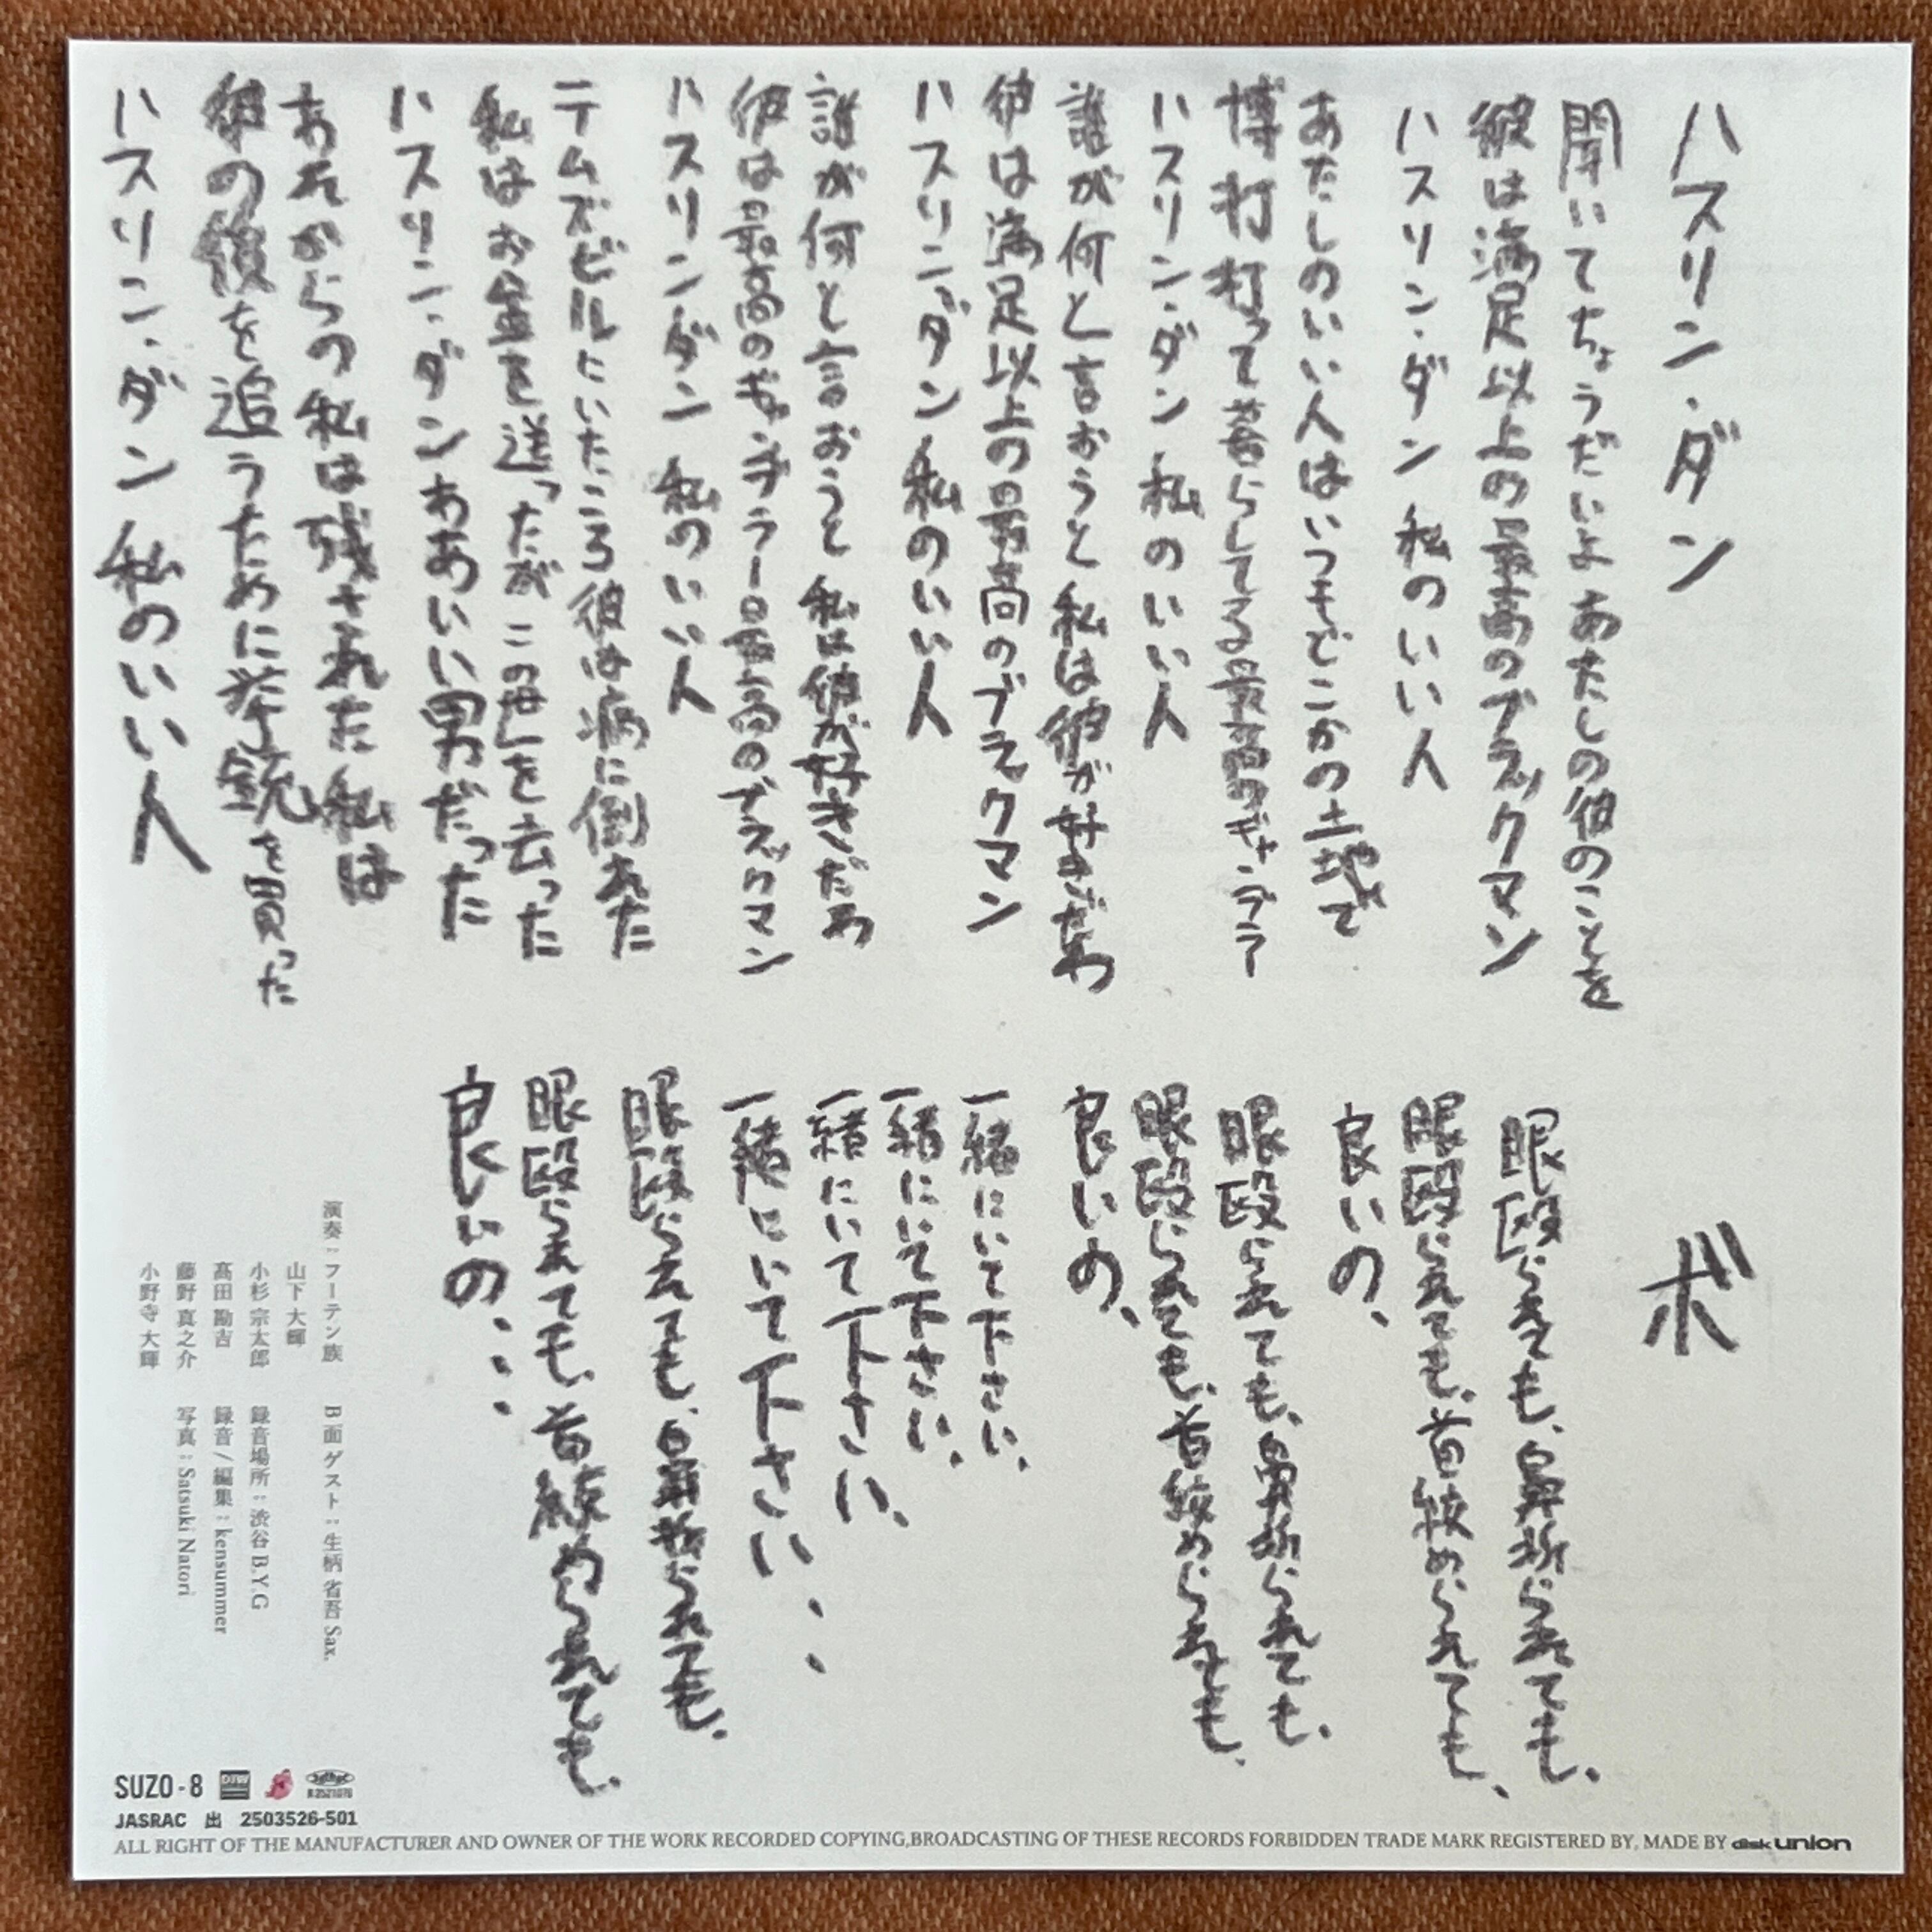 ハスリン・ダン
聞いてちょうだいよ あたしの彼のことを
彼は満足以上の最高のブラックマン
ハスリン・ダン 私のいい人
あたしのいい人はいつもどこかの土地で
博打打って暮らしてる最高のギャンブラー
ハスリン・ダン 私のいい人
誰が何と言おうと 私は彼が好きだわ
彼は満足以上の最高のブラックマン
ハスリン・ダン 私のいい人
誰が何と言おうと 私は彼が好きだわ
彼は最高のギャンブラー最高のブラックマン
ハスリン・ダン 私のいい人
テムズビルにいたころ彼は病に倒れた
私はお金を送ったが この世を去った
ハスリン・ダン ああいい男だった
あれからの私は残された 私は
彼の後を追うために拳銃を買った
ハスリン・ダン 私のいい人
ボ
眼殴られても、鼻折られても、
眼殴られても、首絞められても、
良いの、
眼殴られても、鼻折られても、
眼殴られても、首絞められても、
良いの、
一緒にいて下さい、
一緒にいて下さい、
一緒にいて下さい、
一緒にいて下さい、、、
眼殴られても、鼻折られても、
眼殴られても、首絞められても、
良いの、、、
演奏:フーテン族
山下 大輝
小杉 宗太郎
髙田 勘吉
藤野 真之介
小野寺 大輝
B面 ゲスト:生柄 省吾 Sax.
録音場所:渋谷 B.Y.G
録音/編集:kensummer
写真:Satsuki Natori
SUZO-8 DIW
R-2521070
JASRAC 出 2503526-501
ALL RIGHT OF THE MANUFACTURER AND OWNER OF THE WORK RECORDED COPYING,BROADCASTING OF THESE RECORDS FORBIDDEN TRADE MARK REGISTERED BY, MADE BY disk union